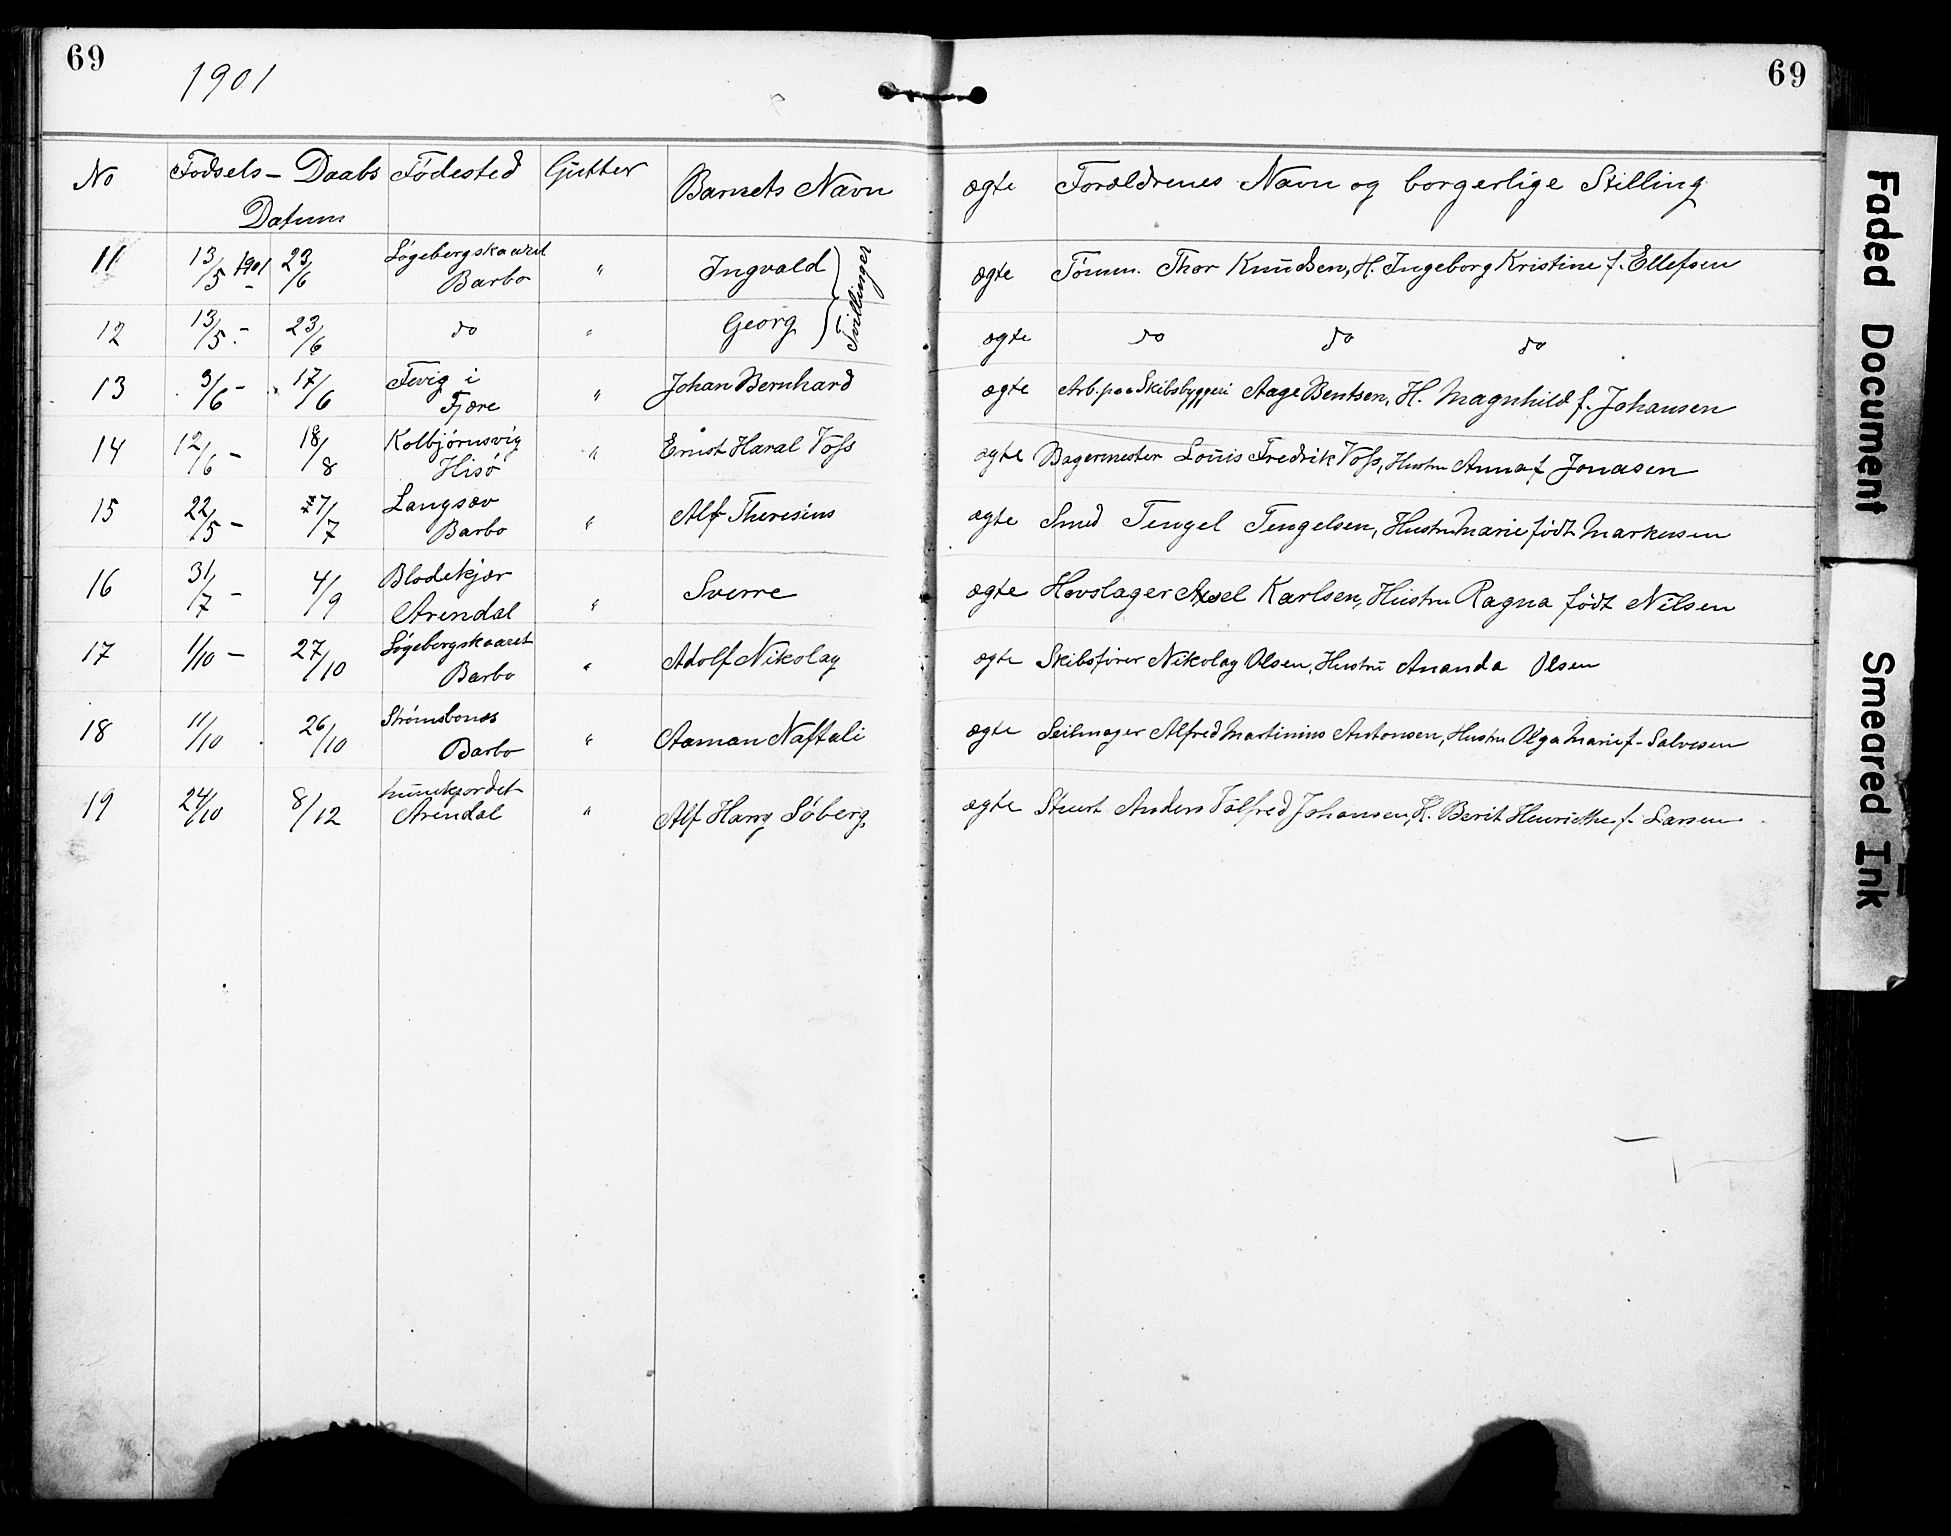 69
1901
69
No Fødsels- Daabs Datum Fødested Gutter Barnets Navn ægte Forældrenes Navn og borgerlige Stilling
11 13/5 1901 23/6 Løgebergskaaret Barbo " Ingvald ægte Tømm. Thor Knudsen, H. Ingeborg Kristine f. Ellefsen
Tvillinger
12 13/5 - 23/6 do " Georg ægte do do do
13 3/6 - 17/6 Fevig i Fjære " Johan Bernhard ægte Arb. paa Skibsbyggeri Aage Bentsen, H. Magnhild f. Johansen
14 12/6 - 18/8 Kolbjørnsvig Hisø " Ernst Haral Voss ægte Bagermester Louis Fredrik Voss, Hustru Anna f Jonasen
15 22/5 - 27/7 Langsæv Barbo " Alf Theresius ægte Smed Tengel Tengelsen, Hustru Marie født Markusen
16 31/7 - 4/9 Blødekjær Arendal " Sverre ægte Hovslager Axel Karlsen, Hustru Ragna født Nilsen
17 1/10 - 27/10 Løgebergskaaret Barbo " Adolf Nikolay ægte Skibsfører Nikolay Olsen, Hustru Ananda Olsen
18 11/10 26/10 Strømsbones Barbo " Aaman Naftali ægte Seilmager Alfred Martinius Antonsen, Hustru Olga Marie f. Salvesen
19 24/10 8/12 Arendal " Alf Harry Søberg ægte Stuert Anders Tolfred Johansen, H. Berit Henriethe f. Larsen
Faded Document
Smeared Ink